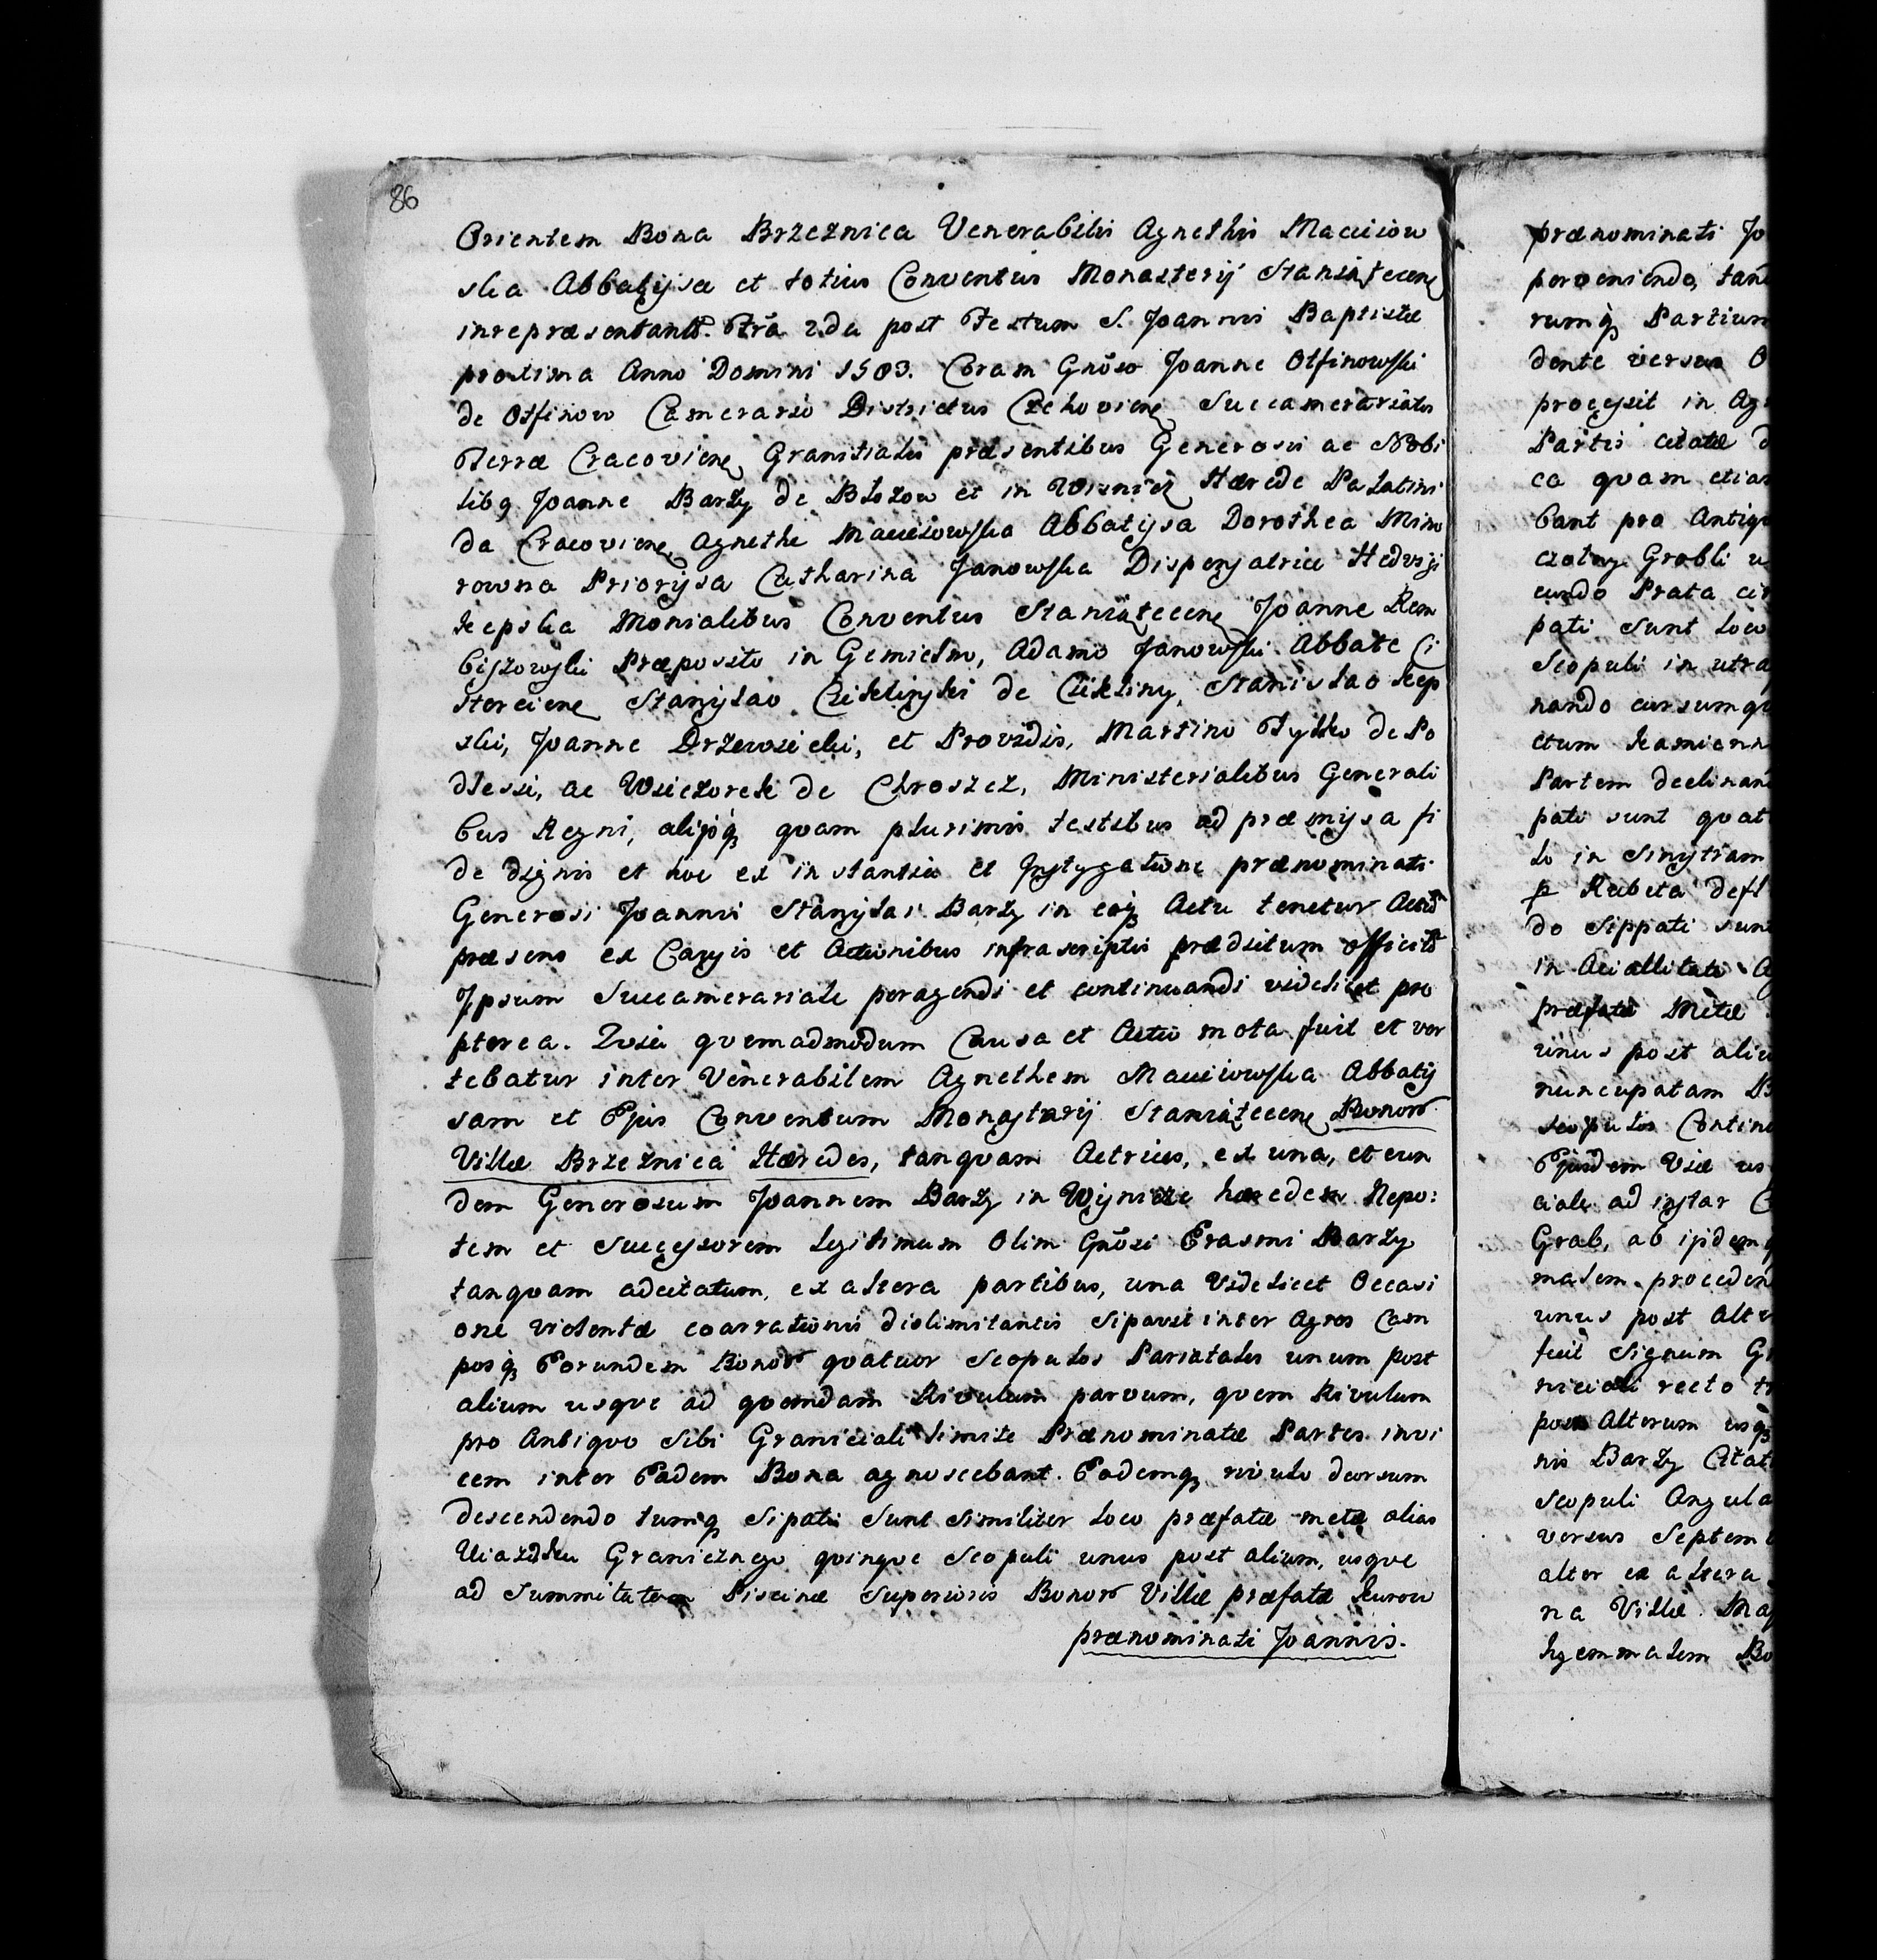 86
Orientem Bona Brzeznica Venerabilis Agnethis Maciiow
ska Abbatyssæ et totius Conventus Monasterij Staniąteceñ
inrepræsentant. Fra 2da post Festum S. Joannis Baptistæ
proxima Anno Domini 1503. Coram Gnõso Joanne Otfinowski
de Otfinow Camerario Districtus Czchovieñ Succamerariatus
Terræ Cracovieñ Granitialis præsentibus Generosis ac Nobi
libq Joanne Barzy de Błozow et in Wisnicz Hærede Palatini
da Cracovieñ Agnethe Macieiowska Abbatyssa Dorothea Mino
rowna Priorysa Catharina Janowska Dispensatrice Hedvigi
Kepska Monialibus Conventus Staniąteceñ Joanne Rem
biszowski Præposito in Gemielno, Adamo Janowski Abbate Ci
sterciene Stanislao Cikliński de Cikliny, Stanislao Kep
ski, Joanne Drzewicki, et Providis, Martino Tylko de Po
dlessi, ac Wieczorek de Chroszcz, Ministerialibus Generali
bus Regni, alijsq quam plurimis testibus ad præmissa fi
de dignis et hoc ex instantia et Instygatione prænominati
Generosi Joannis Stanislai Barzy in cujq Actu tenetur
præsens ex Causis et Actionibus infrascriptis prædictum
Ipsum Succamerariale peragendi et continuandi videlicet pro
pterea. Quia quemadmodum Causa et Actio mota fuit et ver
tebatur inter Venerabilem Agnethem Macieiowska Abbatis
sam et Ejus Conventum Monasterij Staniąteceñ Bonor
Villæ Brzeznica Hæredes, tanquam Actrices, ex una, et eun
dem Generosum Joannem Barzy in Wisnicze hæredem Nepo:
tem et Successorem Legitimum Olim Gnõsi Erasmi Barzy
tanquam adcitatum, ex altera partibus, una Videlicet Occasi
one violentæ coarrationis dislimitantis Sipavit inter Agros Cam
posq Eorundem Bonor quatuor Scopulos Parietales unum post
alium usque ad quemdam Rivulum parvum, quem Rivulum
pro Antiquo sibi Graniciali limite Prænominatæ Partes invi
cem inter Eadem Bona agnoscebant. Eodemq rivulo deorsum
descendendo tumq Sipati sunt similiter loco præfatæ metæ alias
Uiazdku Granicznego quinque Scopuli unus post alium, usque
ad Summitatem Piscinæ Superioris Bonor Villæ præfatæ Kurow
prænominati Joannis.
prænominati Jo
perveniendo,
rumq Partium
dente versus O
processit in Ag
Partis citatæ d
ca quam etia
bant pro Antiqu
Grobli
eundo Prata ci
pati sunt loco
Scopuli in utra
nando cursumq
ctum Kamienn
Partem declinan
pati sunt quat
lo in Sinistram
p Rubeta defl
do Sippati sunt
in
præfatæ Metæ
unus post aliu
nuncupatam B
scopulos Contin
Ejusdem Viæ us
ciale ad instar C
Grab, ab ipdem
malem proceden
unus post Alte
fuit Signum G
niciali recto t
post Alterum usq
nis Barzy Citat
Scopuli Angula
versus Septem
alter ex altera
na Villæ Ma
hyemmalem Bo